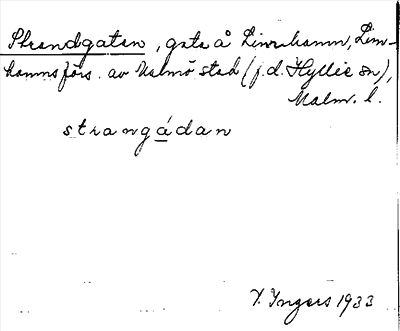 Strandgatan, gata å Limhamn, Lim-
hamns förs. av Malmö stad (f.d. Hyllie sn),
Malm. l.
strangádan
I. Ingers 1933